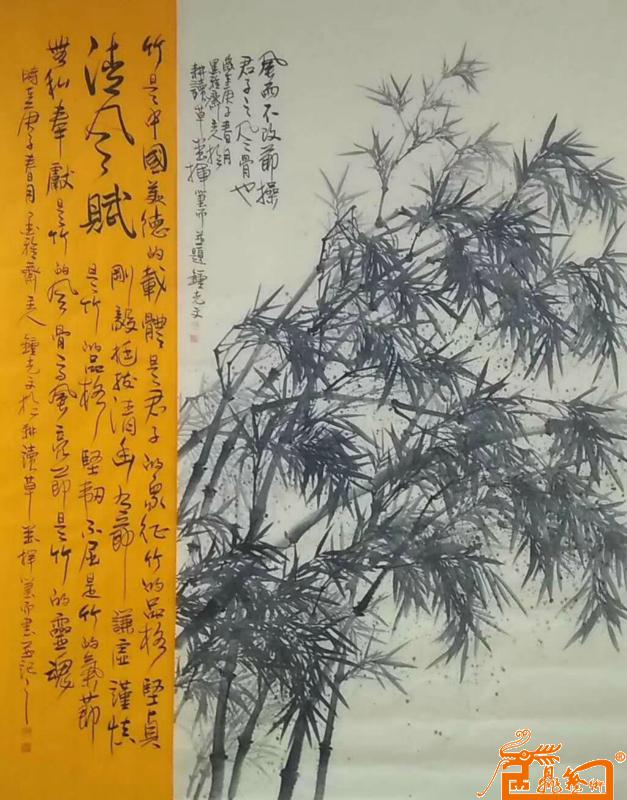 風雨不改節操
君子之風骨也
歲在庚子春月
墨雅齋主人於
耕讀草堂揮筆而並題鍾光文
竹是中國美德的載體是君子的象征竹的品格堅貞
清風賦
剛毅挺拔清幽有節謙虛謹慎
是竹的品格堅韌不屈是竹的氣節
無私奉獻是竹的風骨高風亮節是竹的靈魂
時在庚子春月墨雅齋主人鍾光文於耕讀草堂揮筆而書並記之